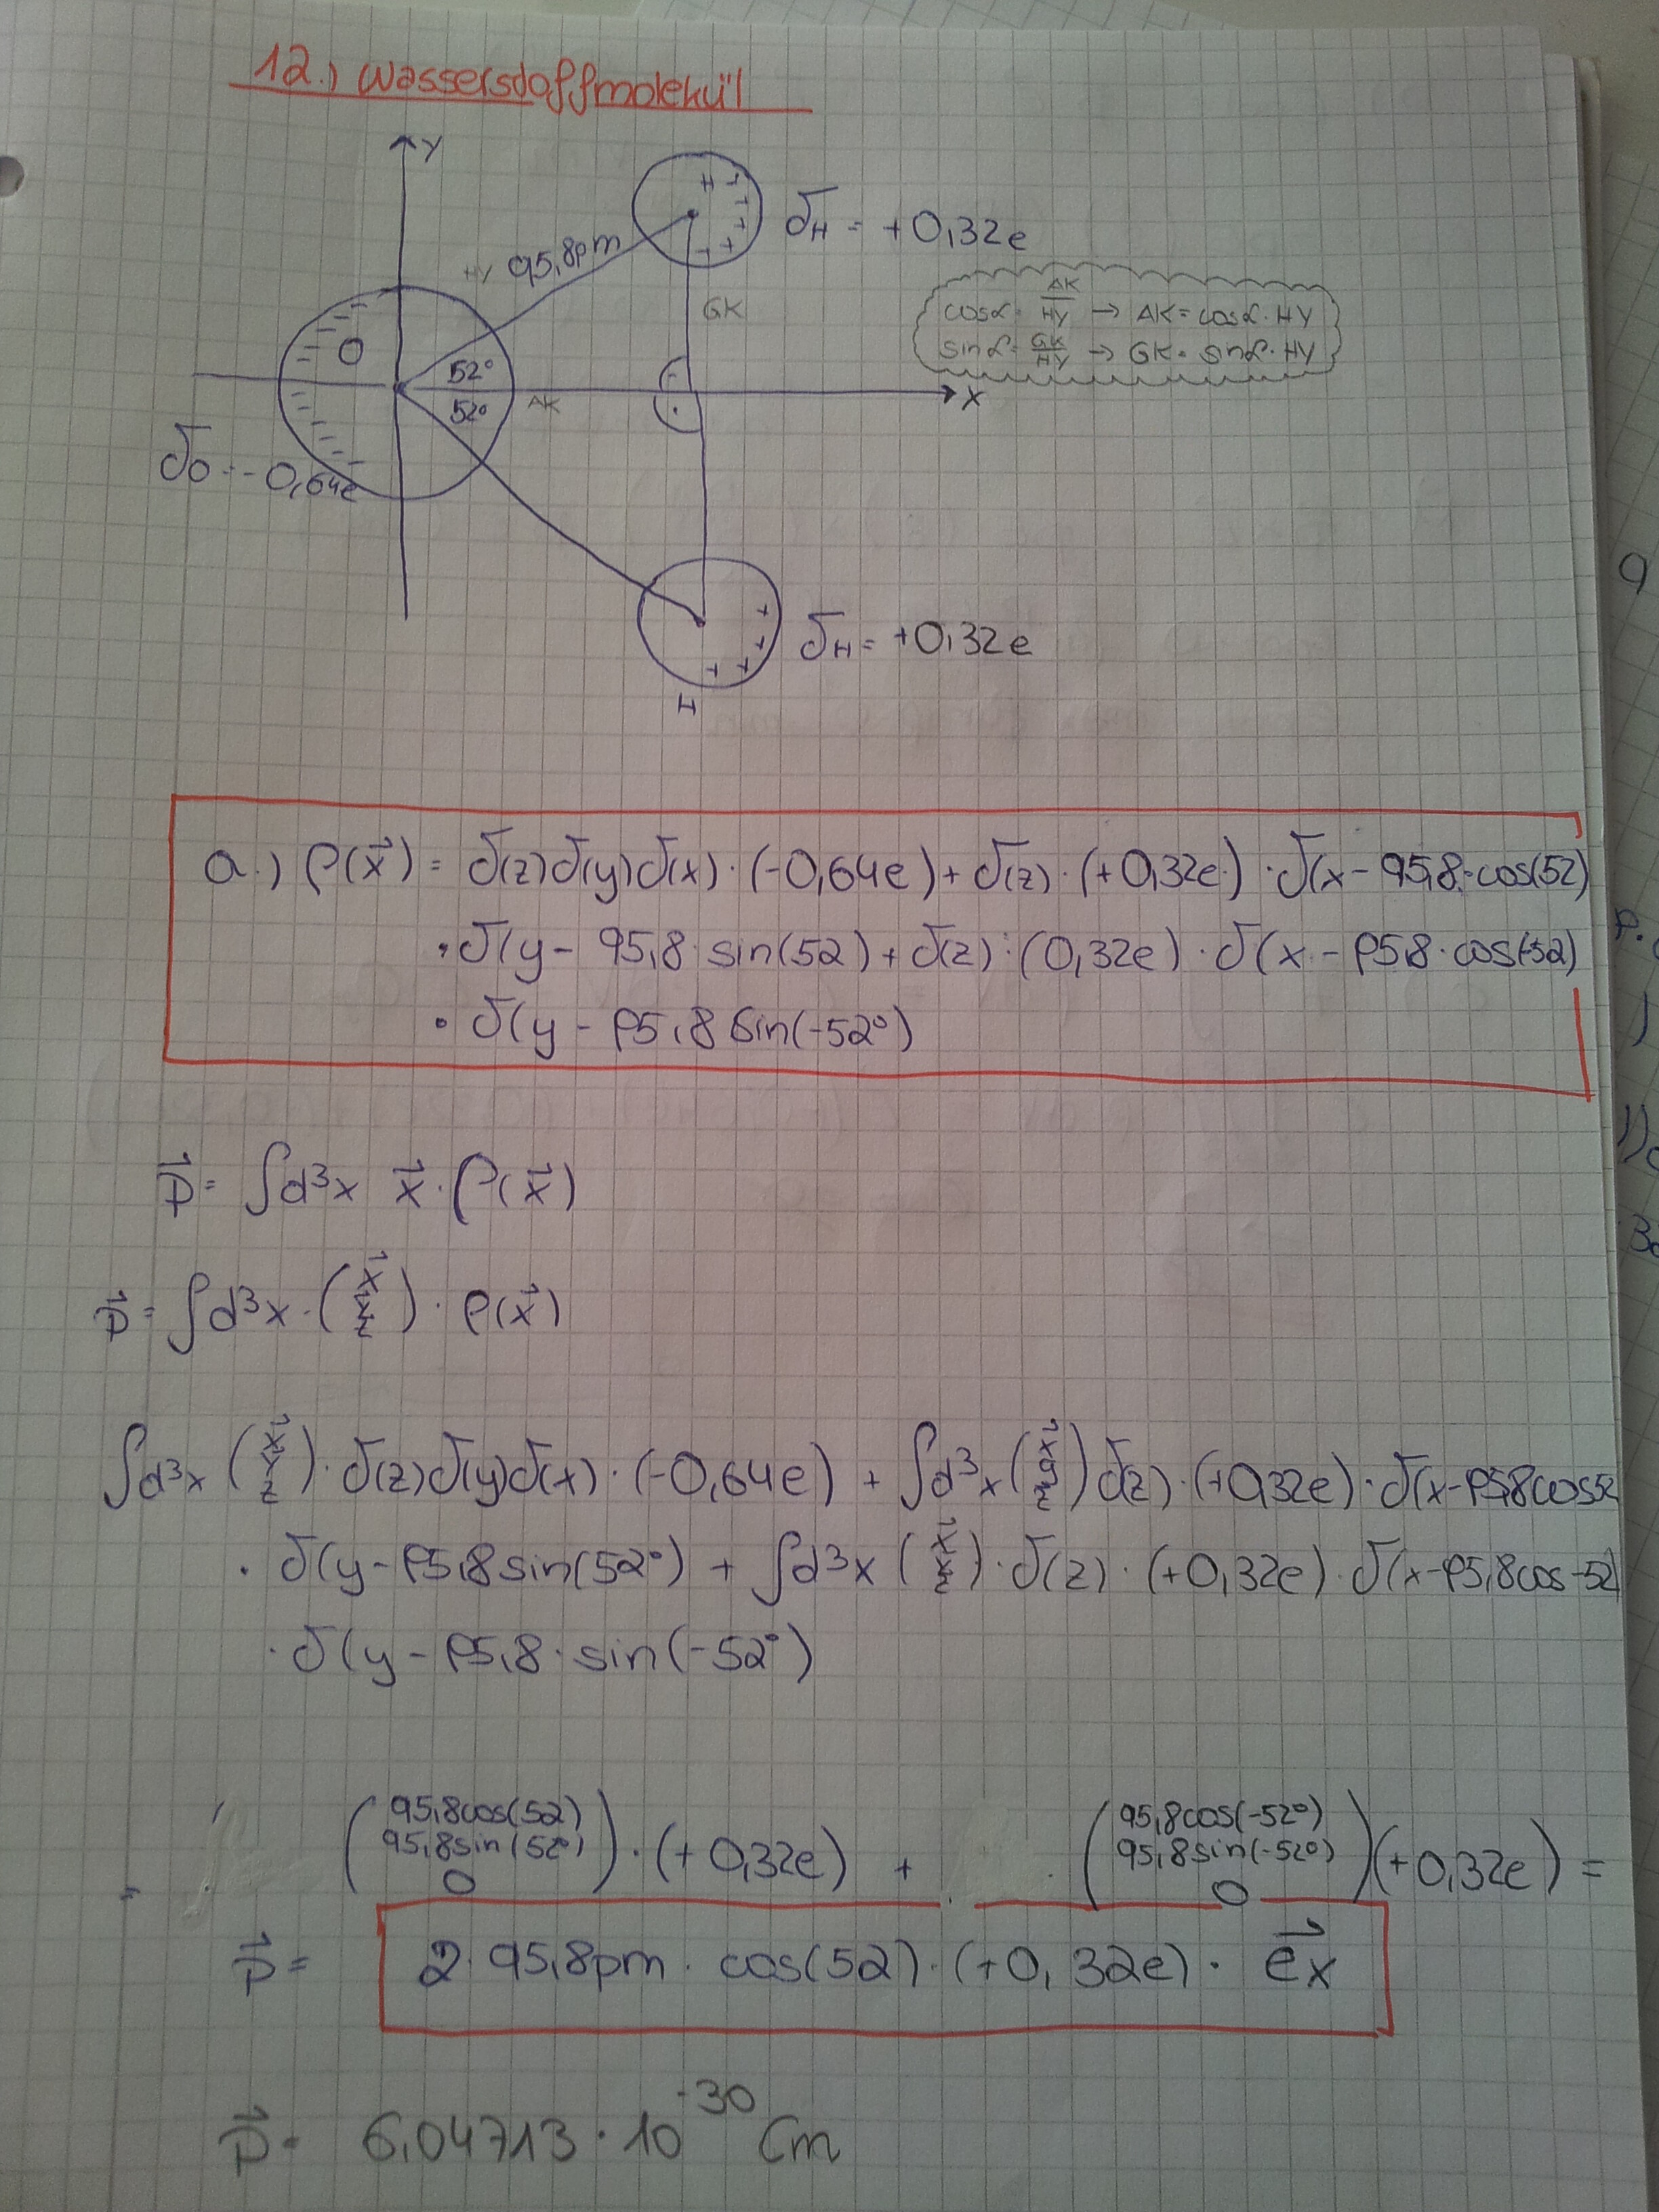 12.) Wassersdoffmolekül
y
H
δH = +0,32e
HY 95,8pm
GK
cosα = AK/HY → AK = cosα · HY
sinα = GK/HY → GK = sinα · HY
O
52°
52°
AK
x
δO = -0,64e
δH = +0,32e
H
a.) ρ(x⃗) = δ(z)δ(y)δ(x) · (-0,64e) + δ(z) · (+0,32e) · δ(x - 95,8 · cos(52)
· δ(y - 95,8 · sin(52) + δ(z) · (0,32e) · δ(x - 95,8 · cos(-52)
· δ(y - 95,8 sin(-52°)
p⃗ = ∫d³x x⃗ · ρ(x⃗)
p⃗ = ∫d³x · (x⃗ y z) · ρ(x⃗)
∫d³x (x⃗ y z) · δ(z)δ(y)δ(x) · (-0,64e) + ∫d³x (x⃗ y z) δ(z) · (+0,32e) · δ(x - 95,8cos52
· δ(y - 95,8 sin(52°) + ∫d³x (x⃗ y z) · δ(z) · (+0,32e) · δ(x - 95,8cos-52)
· δ(y - 95,8 · sin(-52°)
= (95,8cos(52) 95,8sin(52°) 0) · (+0,32e) + (95,8cos(-52°) 95,8sin(-52°) 0) (+0,32e) =
p⃗ = 2 · 95,8pm · cos(52) · (+0,32e) · e⃗x
p⃗ = 6,04713 · 10⁻³⁰ Cm